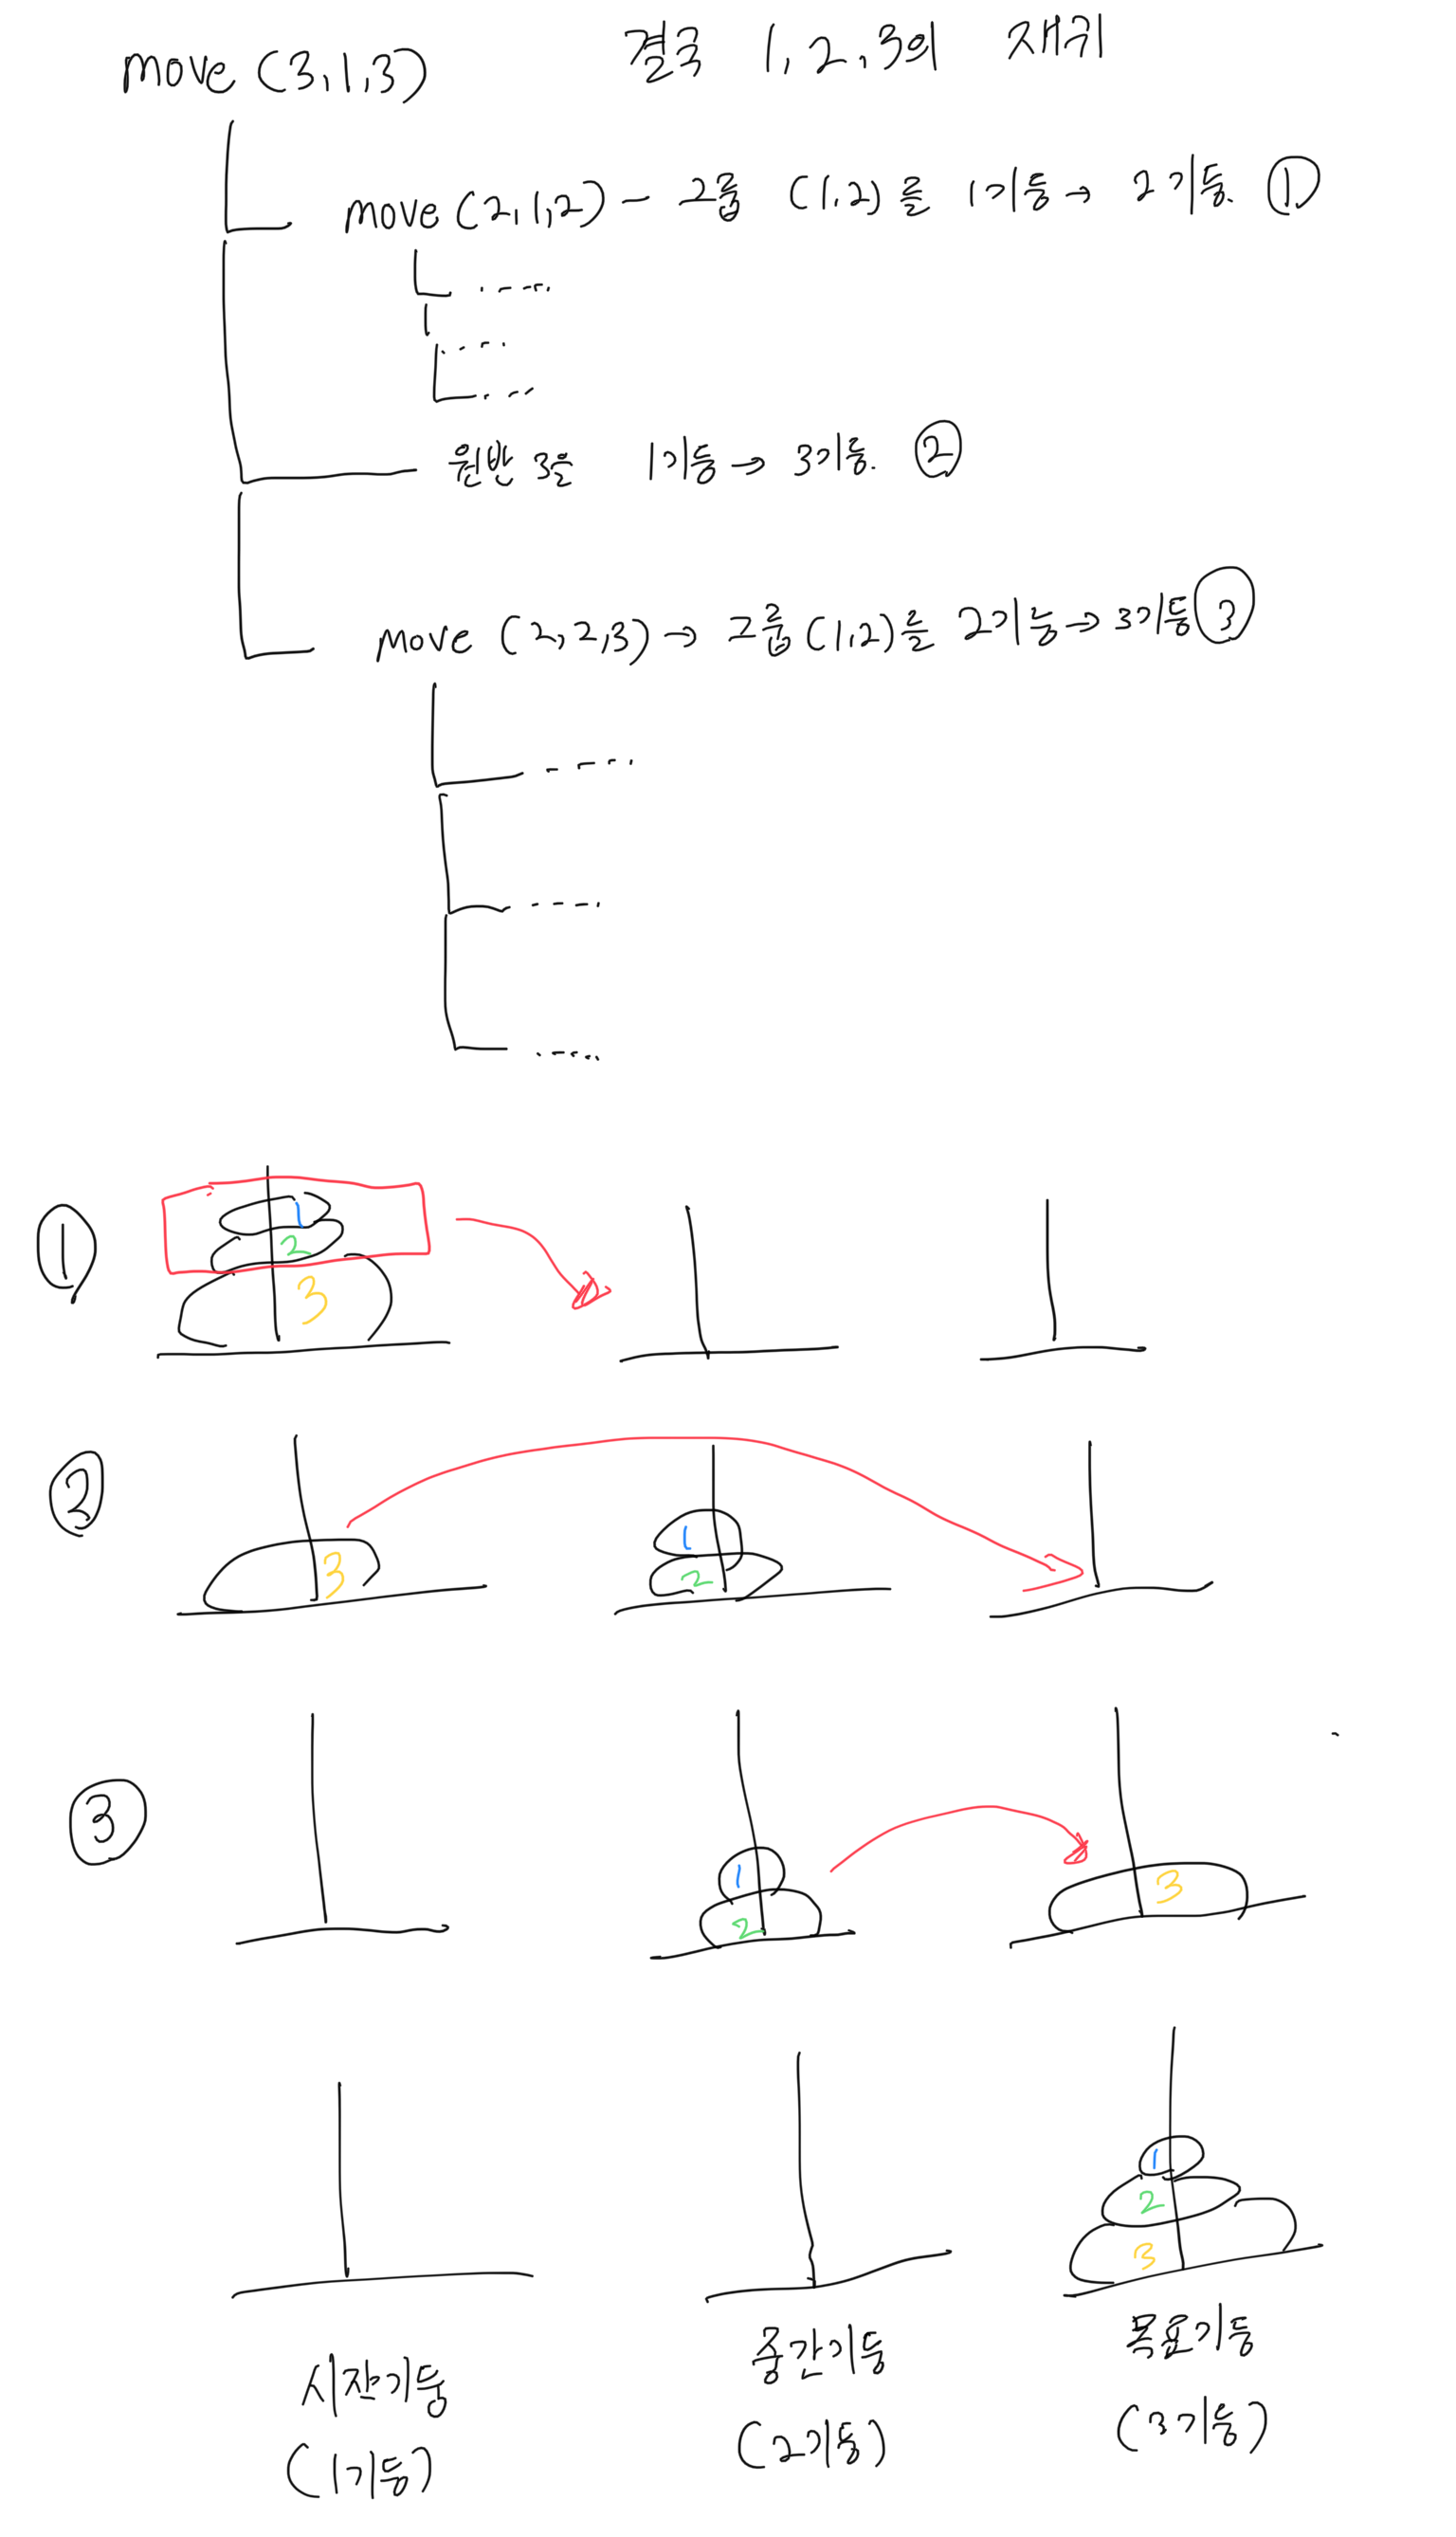 move (3,1,3)
결국 1, 2, 3의 재귀
move (2,1,2) - 그룹 (1,2)를 1기둥 → 2기둥. ①
원반 3을 1기둥 → 3기둥. ②
move (2,2,3) → 그룹(1,2)를 2기둥→3기둥 ③
①
1
2
3
②
3
1
2
③
1
2
3
1
2
3
시작기둥
(1기둥)
중간기둥
(2기둥)
목표기둥
(3기둥)